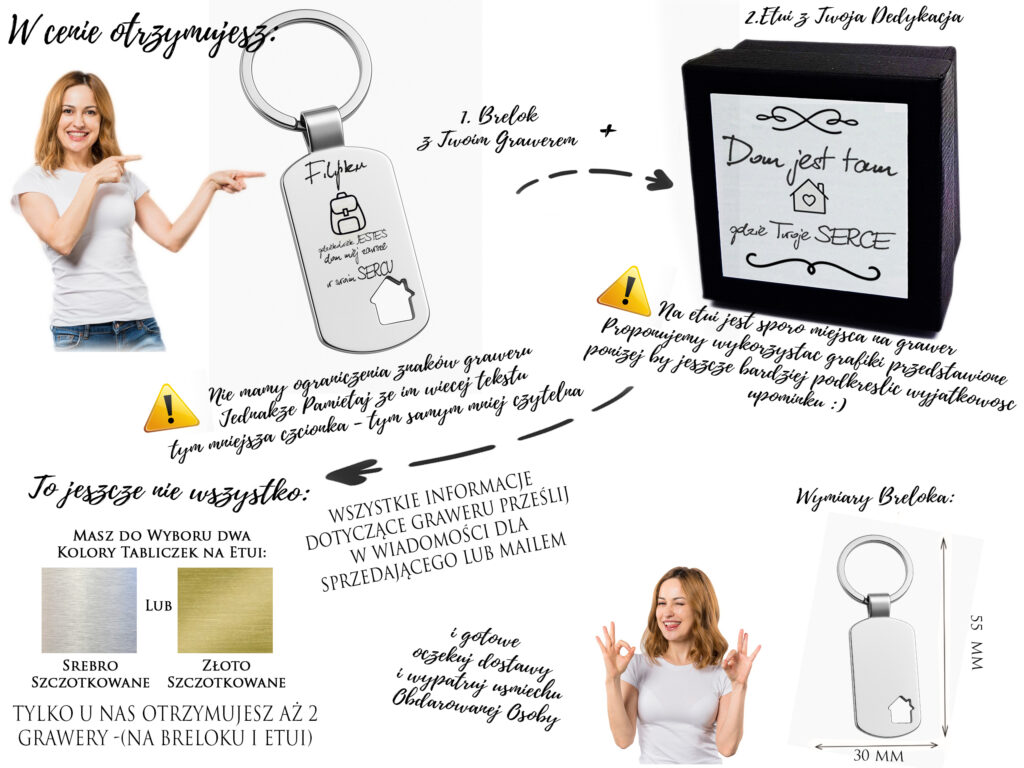 W cenie otrzymujesz:
1. Brelok
z Twoim Grawerem
+
2.Etui z Twoja Dedykacja
Filipku
gdziekolwiek JESTEŚ
dom miej zawsze
w swoim SERCU
Dom jest tam
gdzie Twoje SERCE
Nie mamy ograniczenia znaków graweru
Jednakże Pamietaj ze im wiecej tekstu
tym mniejsza czcionka - tym samym mniej czytelna
Na etui jest sporo miejsca na grawer
Proponujemy wykorzystac grafiki przedstawione
poniżej by jeszcze bardziej podkreslic wyjatkowosc
upominku :)
To jeszcze nie wszystko:
Masz do Wyboru dwa
Kolory Tabliczek na Etui:
Lub
Srebro
Szczotkowane
Złoto
Szczotkowane
TYLKO U NAS OTRZYMUJESZ AŻ 2
GRAWERY -(NA BRELOKU I ETUI)
WSZYSTKIE INFORMACJE
DOTYCZĄCE GRAWERU PRZEŚLIJ
W WIADOMOŚCI DLA
SPRZEDAJĄCEGO LUB MAILEM
i gotowe
oczekuj dostawy
i wypatruj usmiechu
Obdarowanej Osoby
Wymiary Breloka:
55 MM
30 MM